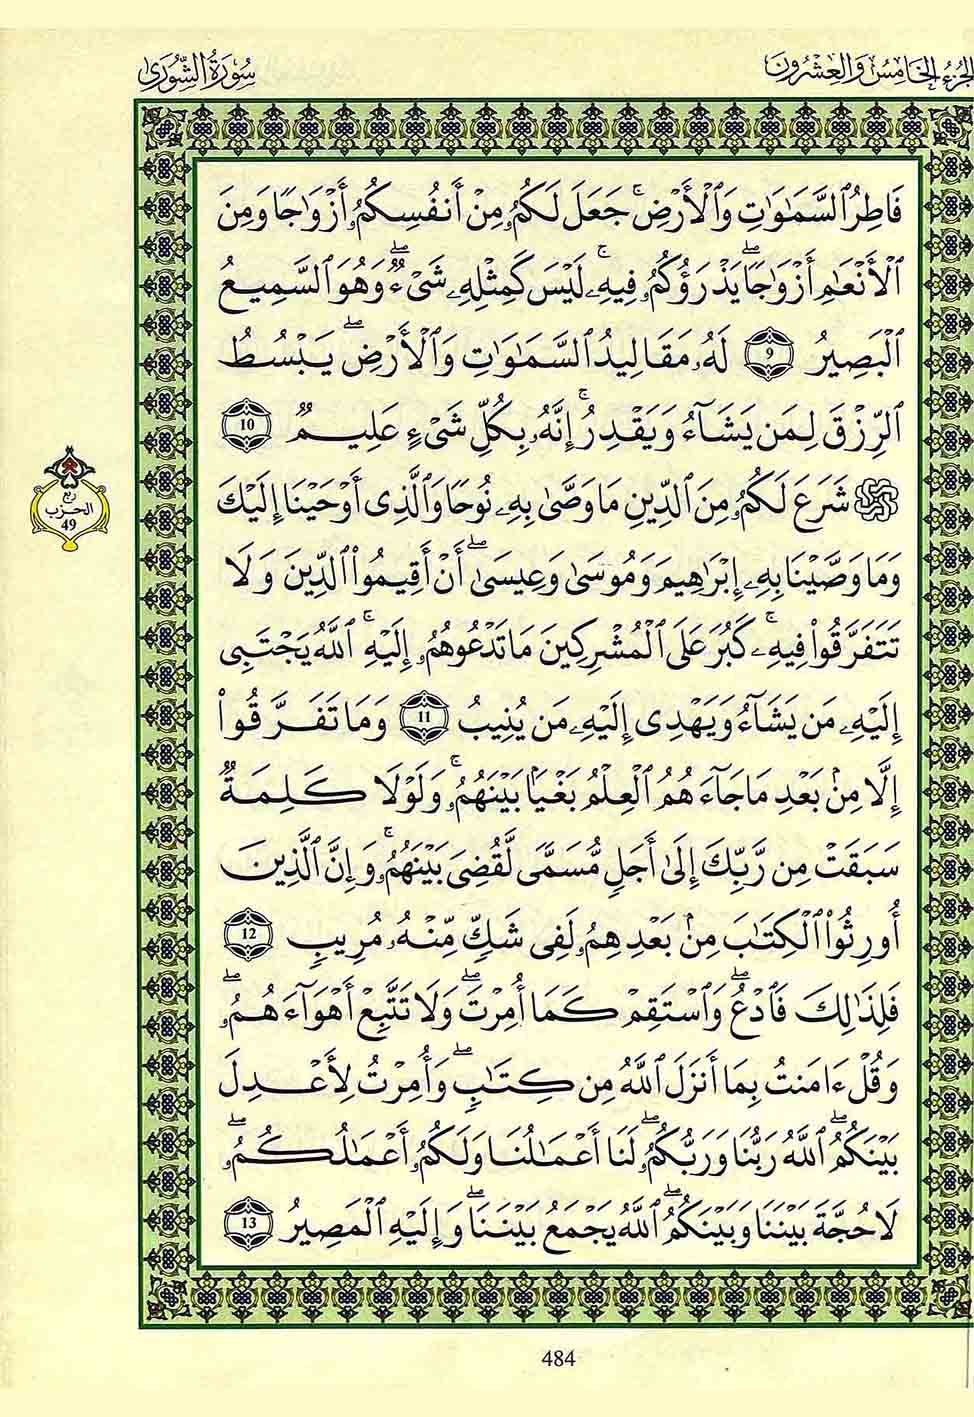 الجزء الخامس والعشرون
سورة الشورى
فَاطِرُ ٱلسَّمَٰوَٰتِ وَٱلْأَرْضِۚ جَعَلَ لَكُمُۥ مِنْ أَنفُسِكُمُۥٓ أَزْوَٰجًا وَمِنَ
ٱلْأَنْعَٰمِ أَزْوَٰجًاۖ يَذْرَؤُكُمُۥ فِيهِۦۚ لَيْسَ كَمِثْلِهِۦ شَىْءٌۖ وَهُوَ ٱلسَّمِيعُ
ٱلْبَصِيرُ 9 لَهُۥ مَقَالِيدُ ٱلسَّمَٰوَٰتِ وَٱلْأَرْضِۖ يَبْسُطُ
ٱلرِّزْقَ لِمَن يَشَآءُ وَيَقْدِرُۚ إِنَّهُۥ بِكُلِّ شَىْءٍ عَلِيمٌ 10
شَرَعَ لَكُمُۥ مِنَ ٱلدِّينِ مَا وَصَّىٰ بِهِۦ نُوحًا وَٱلَّذِىٓ أَوْحَيْنَا إِلَيْكَ
وَمَا وَصَّيْنَا بِهِۦ إِبْرَٰهِيمَ وَمُوسَىٰ وَعِيسَىٰۖ أَنْ أَقِيمُوا۟ ٱلدِّينَ وَلَا
تَتَفَرَّقُوا۟ فِيهِۦۚ كَبُرَ عَلَى ٱلْمُشْرِكِينَ مَا تَدْعُوهُمُۥٓ إِلَيْهِۦۚ ٱللَّهُ يَجْتَبِىٓ
إِلَيْهِۦ مَن يَشَآءُ وَيَهْدِىٓ إِلَيْهِۦ مَن يُنِيبُ 11 وَمَا تَفَرَّقُوٓا۟
إِلَّا مِنۢ بَعْدِ مَا جَآءَهُمُ ٱلْعِلْمُ بَغْيًۢا بَيْنَهُمُۥۚ وَلَوْلَا كَلِمَةٌ
سَبَقَتْ مِن رَّبِّكَ إِلَىٰٓ أَجَلٍ مُّسَمًّى لَّقُضِىَ بَيْنَهُمُۥۚ وَإِنَّ ٱلَّذِينَ
أُورِثُوا۟ ٱلْكِتَٰبَ مِنۢ بَعْدِهِمُۥ لَفِى شَكٍّ مِّنْهُۥ مُرِيبٍ 12
فَلِذَٰلِكَ فَٱدْعُۖ وَٱسْتَقِمْ كَمَآ أُمِرْتَۖ وَلَا تَتَّبِعْ أَهْوَآءَهُمُۥۖ
وَقُلْ ءَامَنتُ بِمَآ أَنزَلَ ٱللَّهُ مِن كِتَٰبٍۖ وَأُمِرْتُ لِأَعْدِلَ
بَيْنَكُمُۥۖ ٱللَّهُ رَبُّنَا وَرَبُّكُمُۥۖ لَنَآ أَعْمَٰلُنَا وَلَكُمُۥٓ أَعْمَٰلُكُمُۥۖ
لَا حُجَّةَ بَيْنَنَا وَبَيْنَكُمُۥۖ ٱللَّهُ يَجْمَعُ بَيْنَنَاۖ وَإِلَيْهِ ٱلْمَصِيرُ 13
ربع
الحزب
49
484